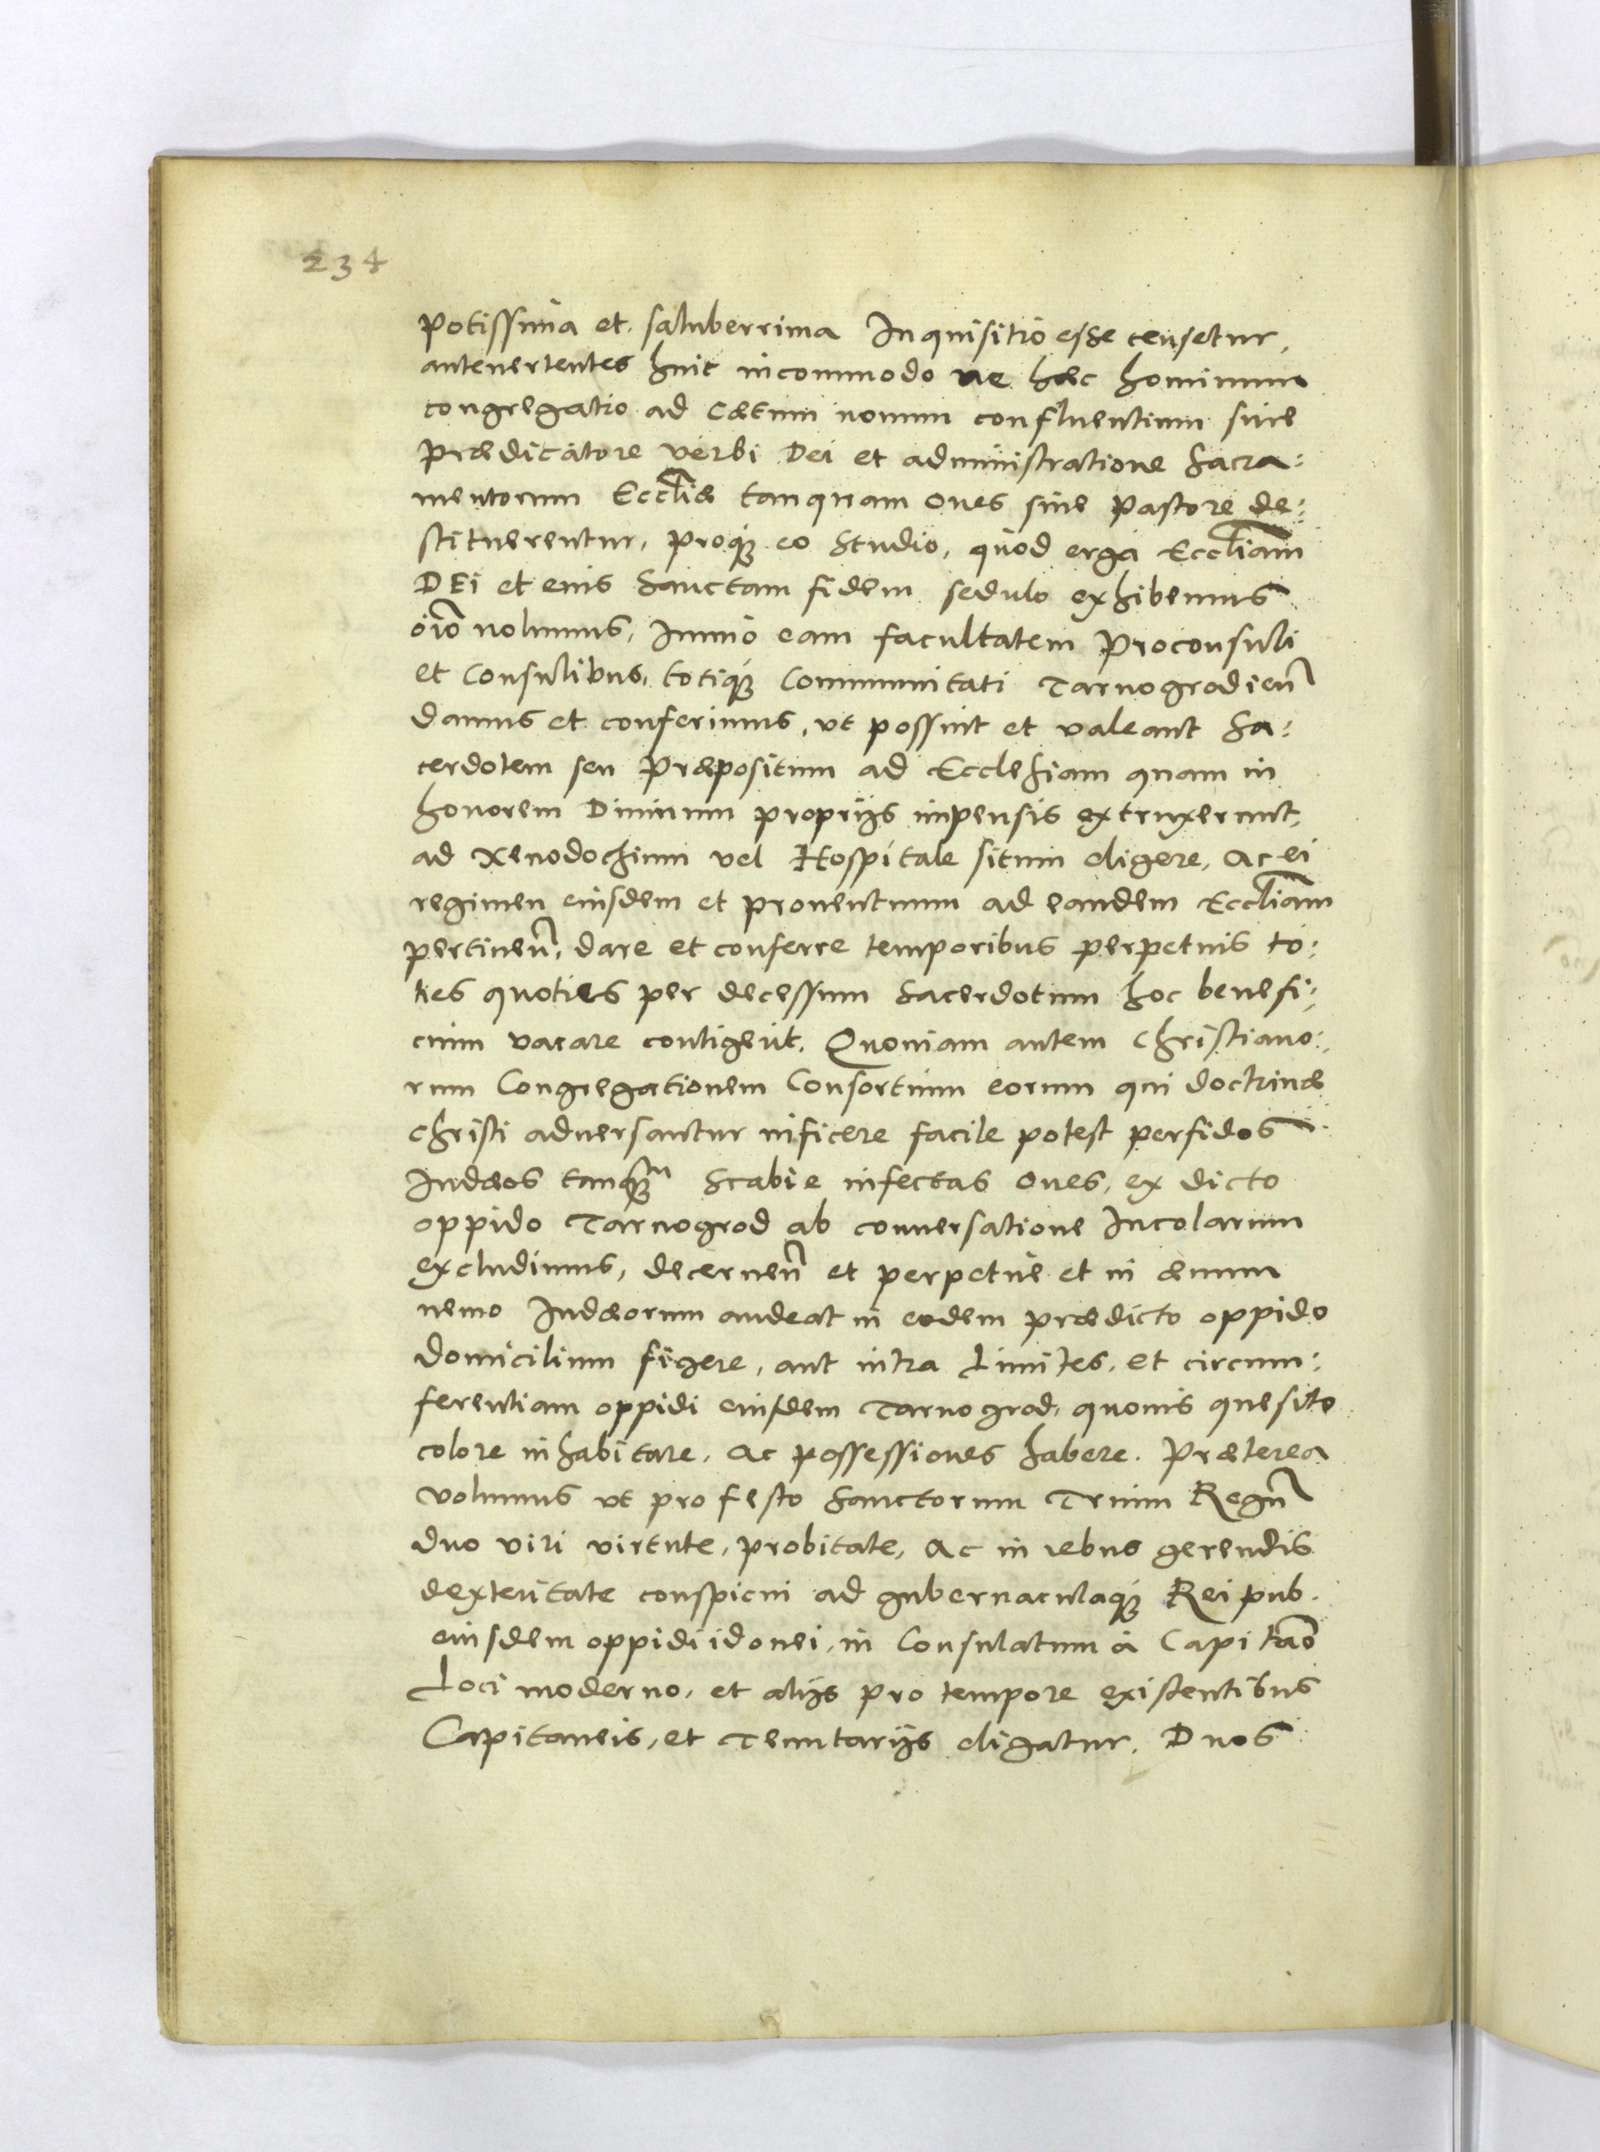 234
potissima et saluberrima Inquisitio esse censetur,
anteuertentes huic incommodo ne hæc hominum
congregatio ad cætum nouum confluentium sine
Prædicatore verbi Dei et administratione Sacra:
mentorum Eccliæ tanquam oues sine Pastore de:
stituerentur, proqꝫ eo studio, quod erga Eccliam
DEi et eius Sanctam fidem sedulo exhibemus
oīo volumus, Immo eam facultatem Proconsuli
et Consulibus, totiqꝫ Communitati Tarnogrodien̄
damus et conferimus, vt possint et valeant Sa:
cerdotem seu Præpositum ad Ecclesiam quam in
honorem Diuinum proprijs impensis extruxerunt,
ad Xenodochium vel Hospitale situm eligere, Ac ei
regimen eiusdem et prouentuum ad eandem Eccliam
pertinen̄, dare et conferre temporibus perpetuis to:
ties quoties per decessum Sacerdotum hoc benefi:
cium vacare contigerit. Quoniam autem Christiano:
rum Congregationem Consortium eorum qui doctrinæ
Christi aduersantur inficere facile potest perfidos
Iudæos tanqꝫm Scabie infectas oues, ex dicto
oppido Tarnogrod ab conuersatione Incolarum
excludimus, decernen̄ et perpetue et in æuum
nemo Iudæorum audeat in eodem prædicto oppido
domicilium figere, aut intra Limites, et circum:
ferentiam oppidi eiusdem Tarnogrod, quouis quesito
colore inhabitare, Ac possessiones habere. Præterea
volumus vt pro festo Sanctorum Trium Regn̄
duo viri virtute, probitate, Ac in rebus gerendis
dexteritate conspicui ad gubernaculaqꝫ Rei pub.
eiusdem oppidi idonei, in Consulatum à Capitāo
Loci moderno, et alijs pro tempore existentibus
Capitaneis, et Tenutarijs eligatur, Duos